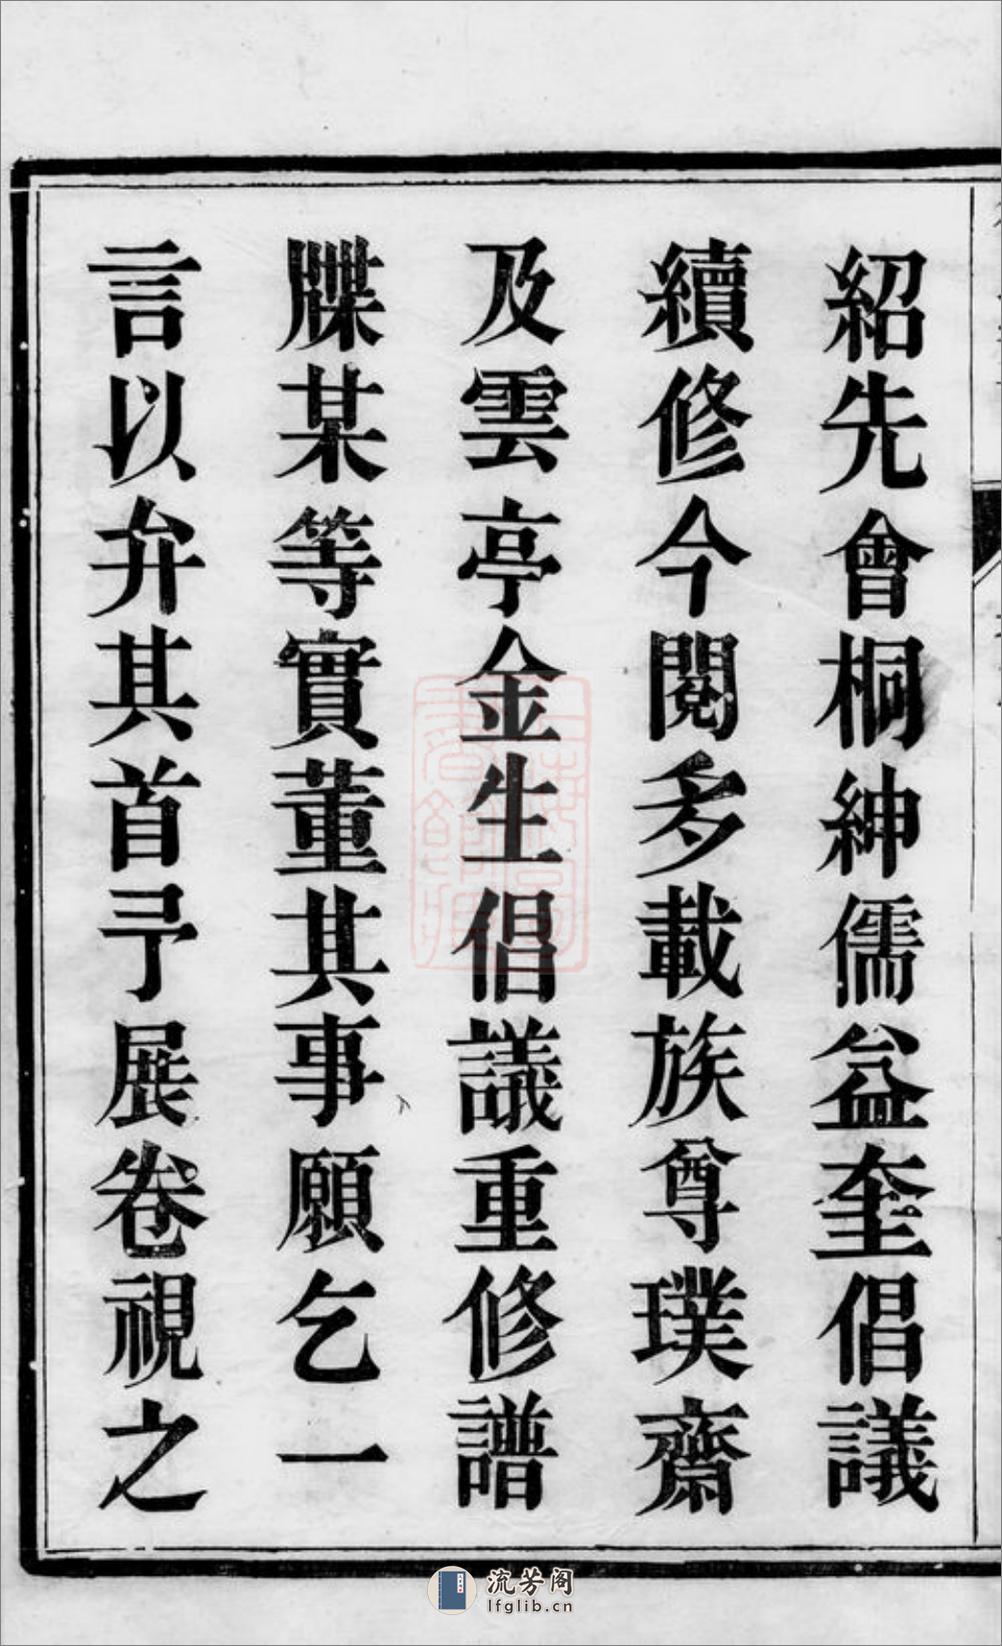 紹先會桐紳儒益奎倡議
續修今閱多載族尊璞齋
及雲亭金生倡議重修譜
牒某等實董其事願乞一
言以弁其首予展卷視之
流芳阁
lfglib.cn